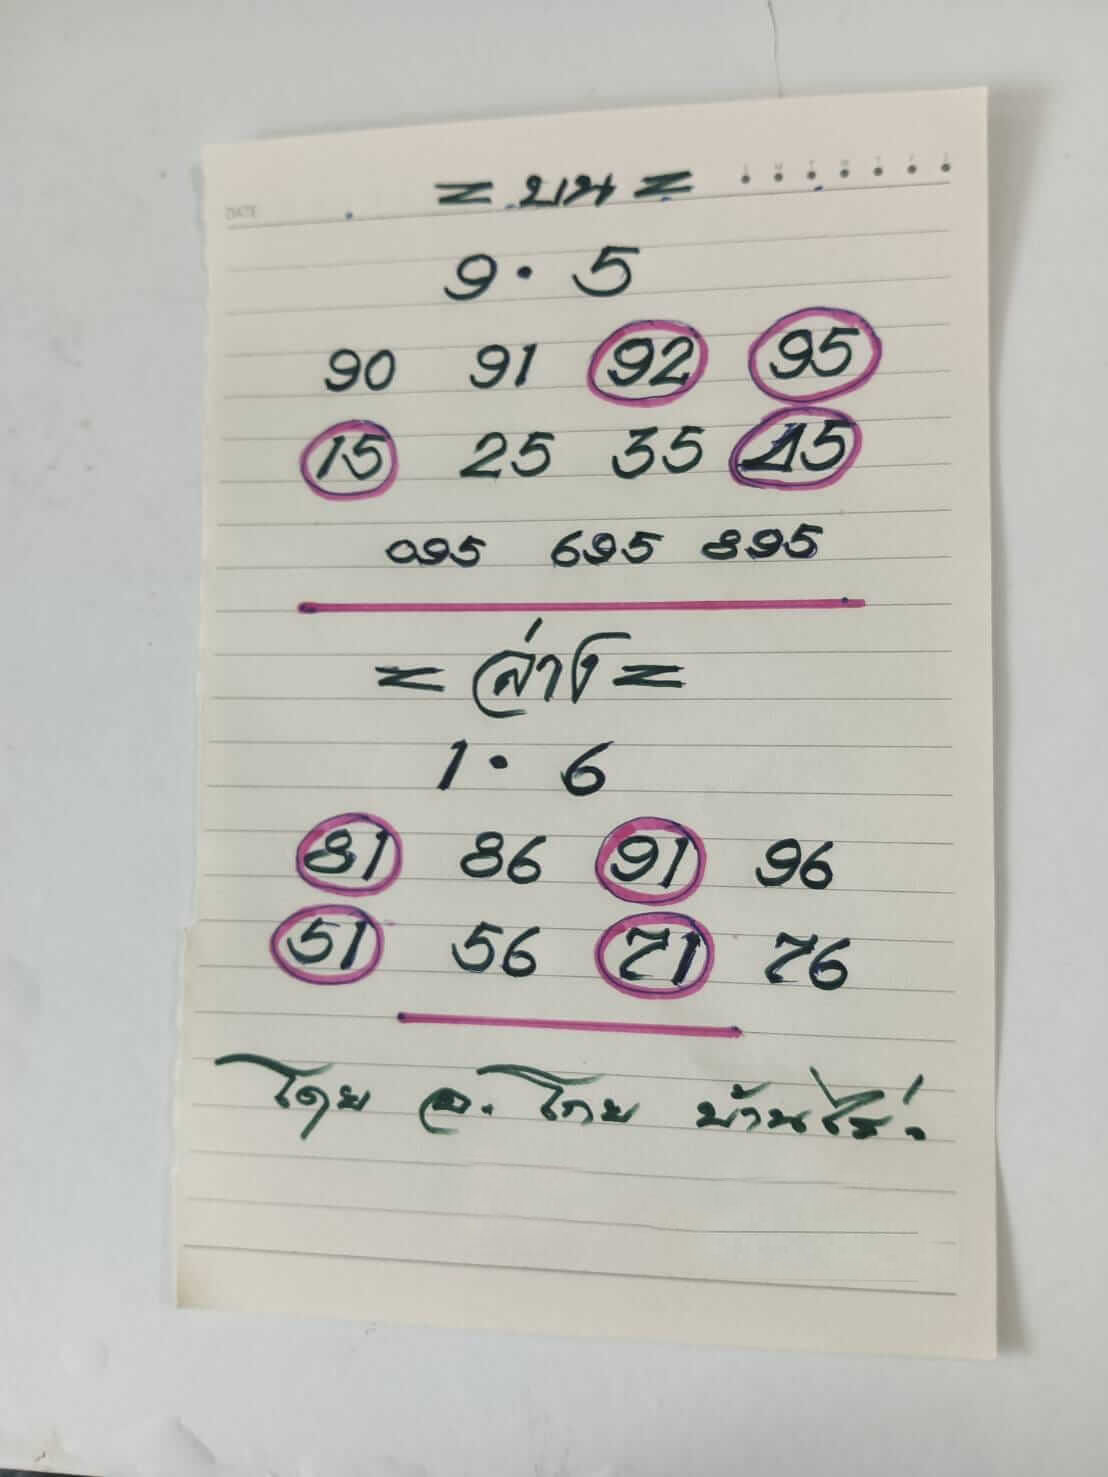 DATE
S M T W T F S
= บน =
9 · 5
90 91 92 95
15 25 35 45
095 695 895
= ล่าง =
1 · 6
81 86 91 96
51 56 71 76
โดย อ. โกย บ้านไร่.